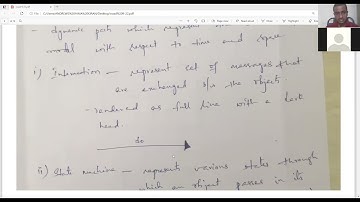 - dynamic part which represent
model with respect to time and space.
i) Interaction - represent set of messages that
are exchanged b/w the objects.
- rendered as full line with a dark
head.
do
ii) State machine - represents various states through
which an object passes in its